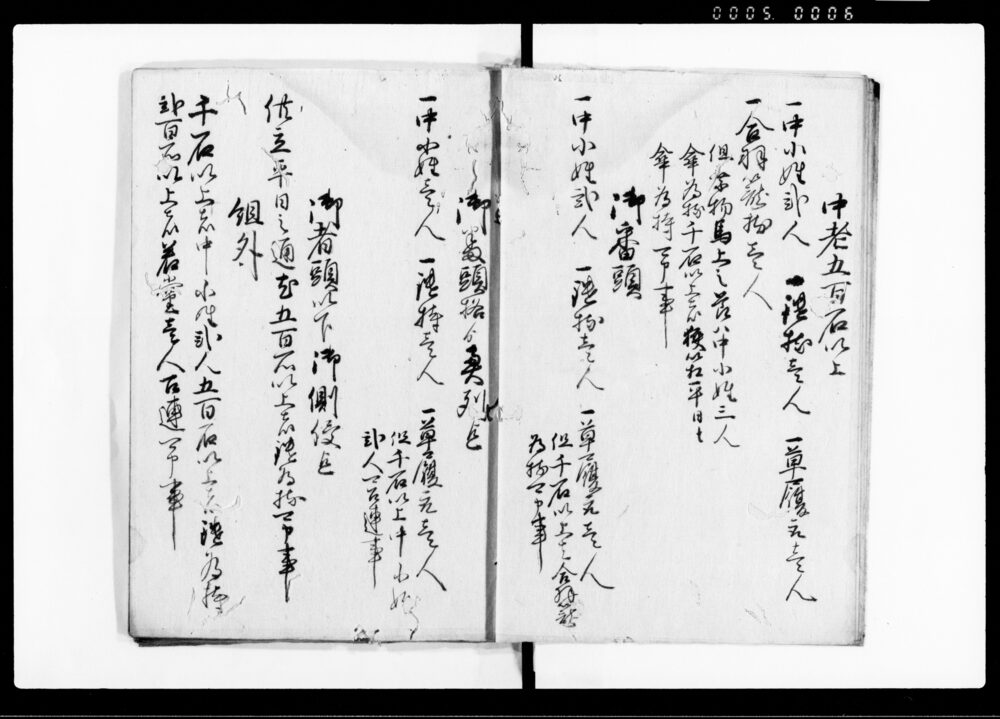 0005. 0006
中老五百石以上
一中小姓弐人 一鑓持壱人 一草履取壱人
一合羽籠持壱人
但乗物馬上之節ハ中小姓三人
傘為持千石以上者挟箱平日も
傘為持可申事
御番頭
一中小姓弐人 一鑓持壱人 一草履取壱人
但千石以上之者合羽籠
為持可申事
御番頭格ゟ奥列迄
一中小姓壱人 一鑓持壱人 一草履取壱人
但千石以上中小姓
弐人可召連事
御者頭以下御側役迄
供立平日之通尤五百石以上者鑓為持可申事
組外
千石以上者中小姓弐人五百石以上者鑓為持
弐百石以上者若党壱人召連可申事